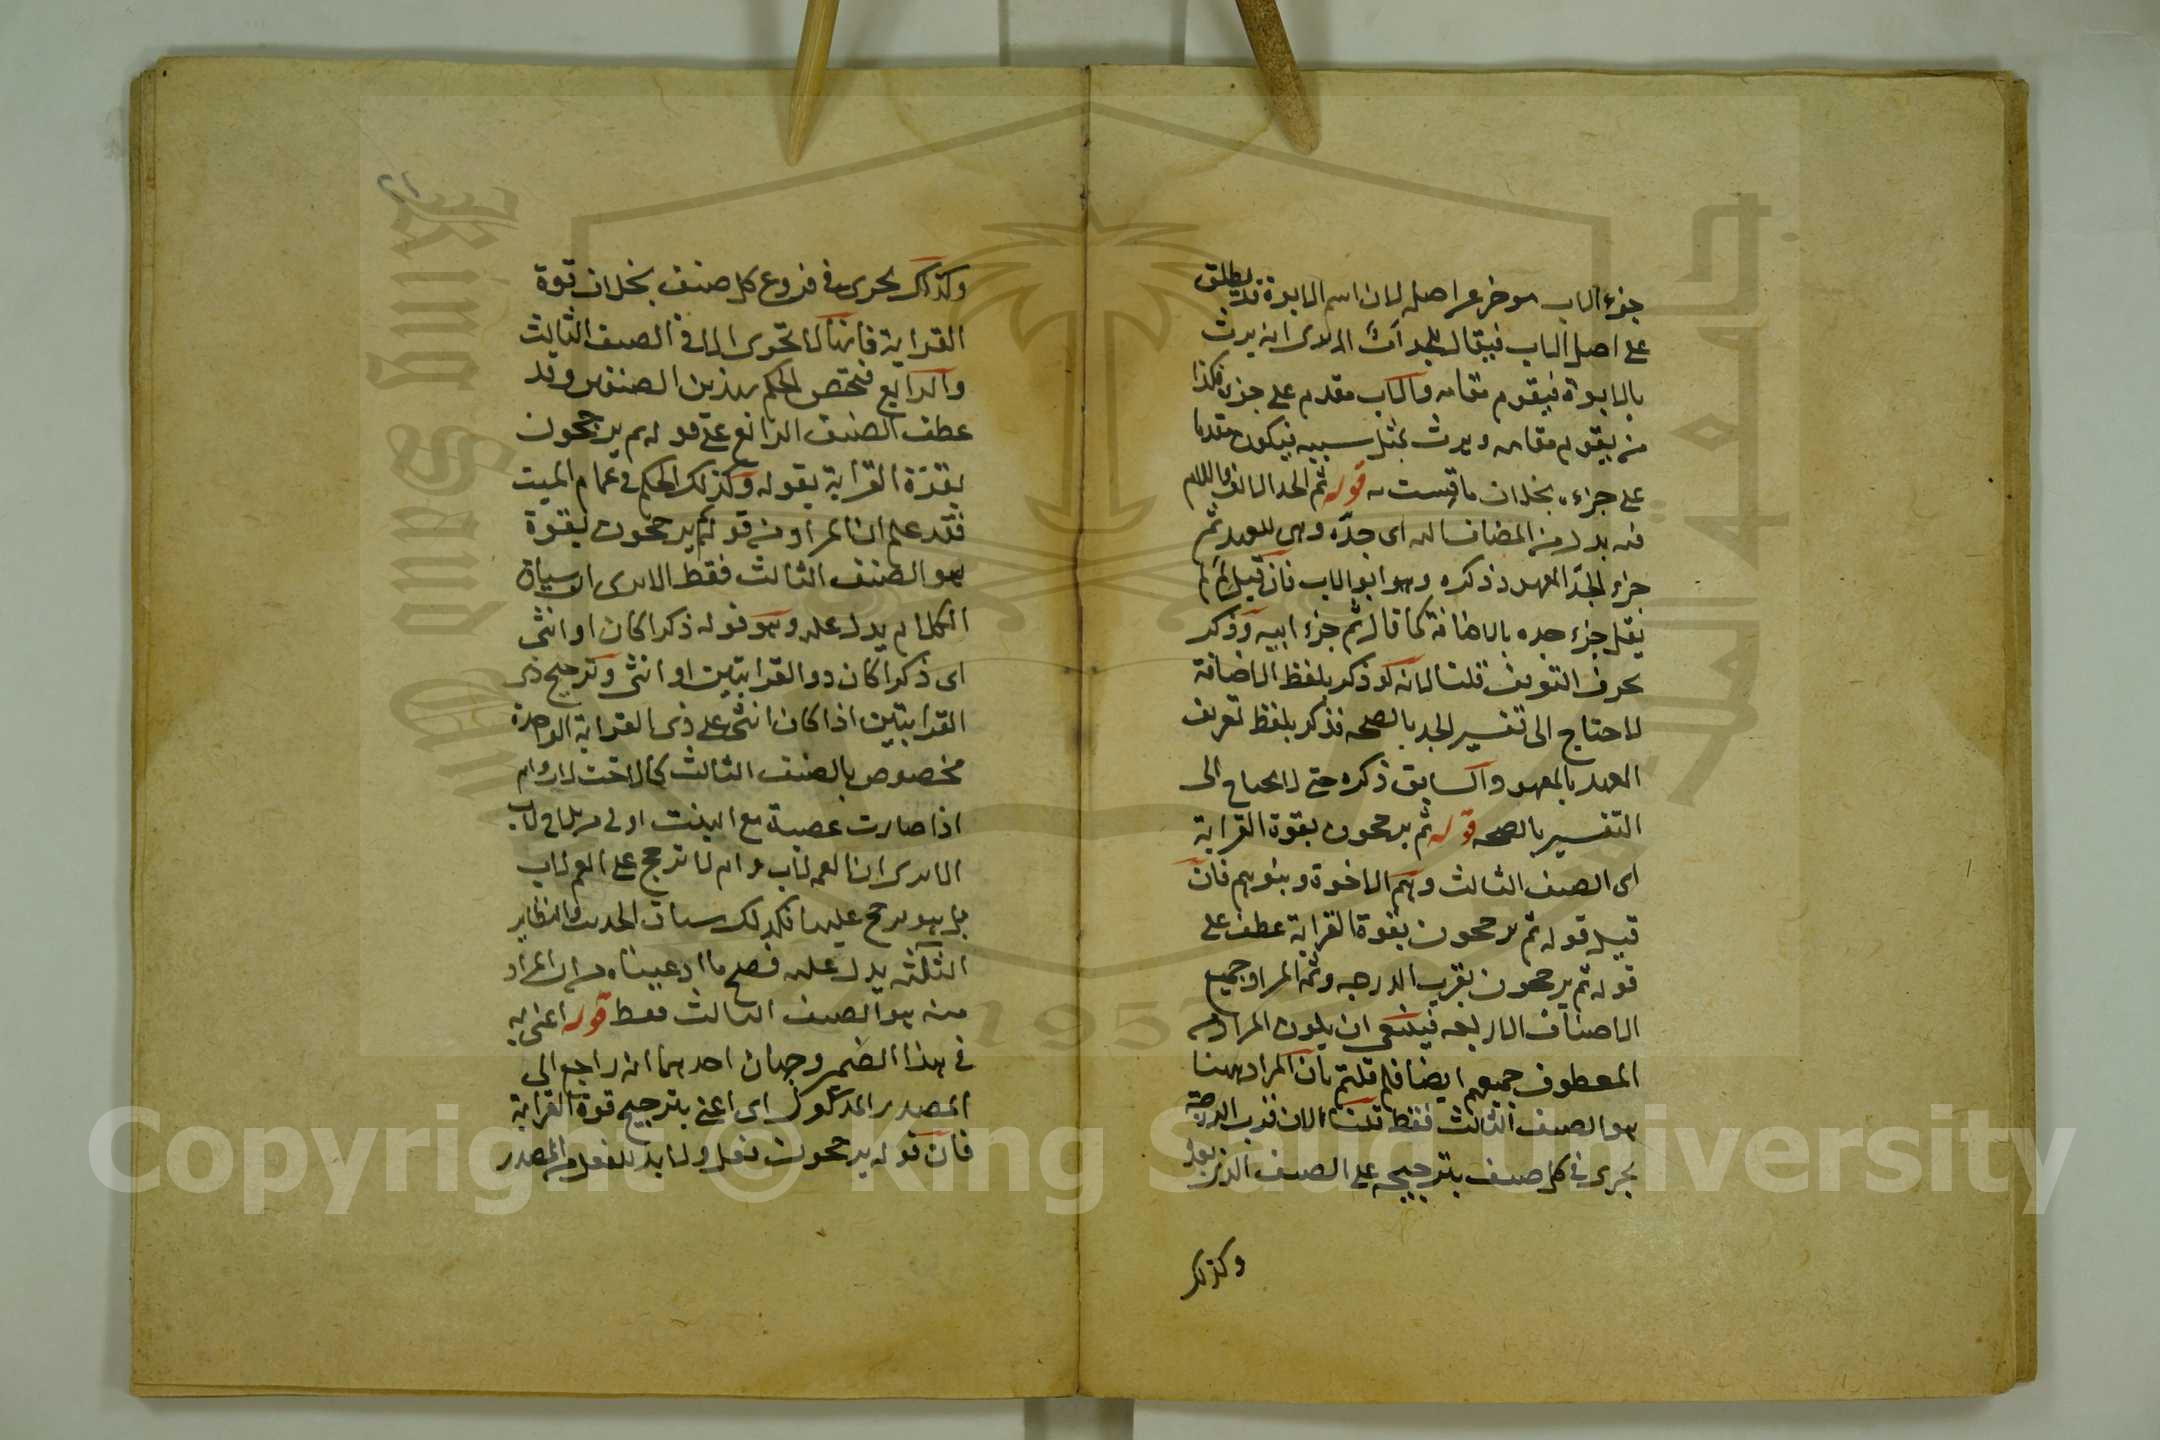 جزء الاب مؤخر عن اصله لان اسم الابوة قد يطلق
على اصل الاب فيقال للجد اب الا يرى انه يرث
بالابوة فيقوم مقامه والاب مقدم على جزئه فكذا
من يقوم مقامه ويرث بمثل سببه فيكون مقدما
على جزءه بخلاف ما قوله ثم الجد الالف واللام
فيه بدل من المضاف اليه اى جده وهى للعهد ثم
جزء الجد المعهود ذكره وهو ابو الاب فان قيل لم لم
يقل جزء جده بالاضافة كما قال ثم جزء ابيه وذكر
بحرف التعريف قلنا لانه لو ذكر بلفظ الاضافة
لاحتاج الى تفسير الجد بالصحة فذكر بلفظ تعريف
العهد بالمعهود السابق ذكره حتى لا يحتاج الى
التفسير بالصحه قوله ثم يرجحون بقوة القرابة
اى الصنف الثالث وهم الاخوة وبنوهم فان
قيل قوله ثم يرجحون بقوة القرابة عطف على
قوله ثم يرجحون بقرب الدرجه وثمة المراد جميع
الاصناف الاربعه فينبغى ان يكون المراد من
المعطوف جميعهم ايضا فلم قلتم بان المراد ههنا
هو الصنف الثالث فقط قلنا لان قرب الدرجة
يجرى فى كل صنف بترجيحه على الصنف الذى بعد
وكذلك
٢١
وكذلك يجرى فى فروع كل صنف بخلاف قوة
القرابة فانها لا تجرى الا فى الصنف الثالث
والرابع فيختص الحكم بهذين الصنفين وقد
عطف الصنف الرابع على قوله ثم يرجحون
بقوة القرابة بقوله وكذلك الحكم فى عمام الميت
فقد علم ان المراد من قوله ثم يرجحون بقوة
هو الصنف الثالث فقط الا يرى ان سياق
الكلام يدل عليه وهو قوله ذكرا كان او انثى
اى ذكرا كان ذو القرابتين او انثى وترجيح ذى
القرابتين اذا كان انثى على ذى القرابة الواحدة
مخصوص بالصنف الثالث كالاخت لاب وام
اذا صارت عصبة مع البنت اولى من الاخ لاب
الا يرى ان العمة لاب وام لا ترجح على العم لاب
بل هو يرجح عليها فكذلك سياق الحديث والنظاير
الثلثه يدل عليه فصح ما ادعيناه من ان المراد
منه هو الصنف الثالث فقط قوله اعنى به
فى هذا الضمير وجهان احدهما انه راجع الى
المصدر المذكور اى اعنى بترجيح قوة القرابة
فان قوله يرجحون فعل ولا بد للفعل من المصدر